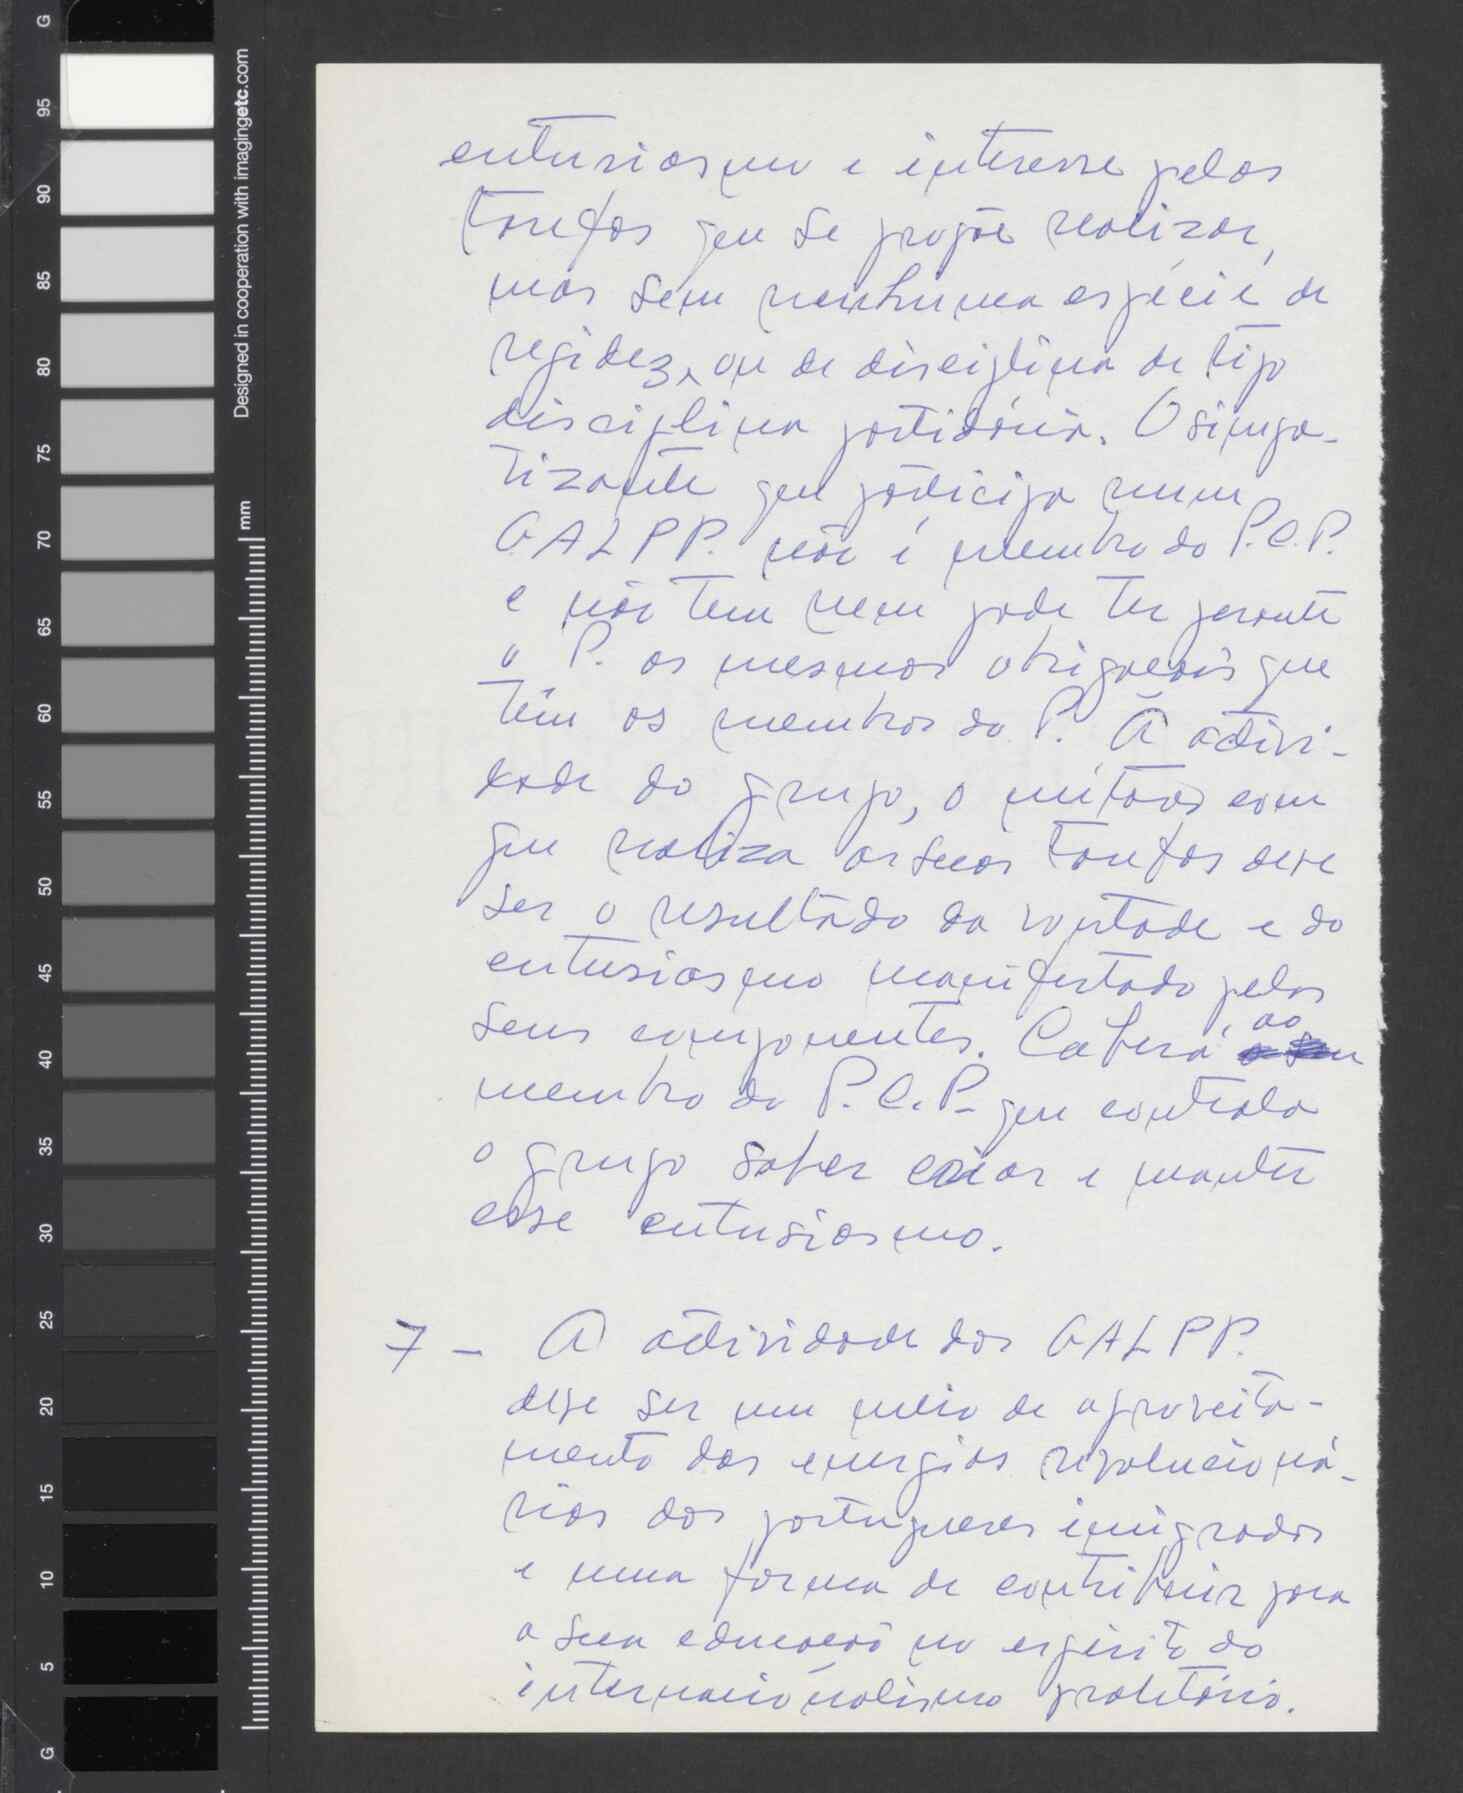 entusiasmo e interesse pelas
tarefas que se propõe realizar,
mas sem nenhuma espécie de
regidez, ou de disciplina de tipo
disciplina partidária. O simpa-
tizante que participa num
GALPP. não é membro do P.C.P.
e não tem nem pode ter perante
o P. as mesmas obrigações que
têm os membros do P. A activi-
dade do grupo, o com
que realiza as suas tarefas deve
ser o resultado da vontade e do
entusiasmo manifestado pelos
seus componentes. Caberá ao
membro do P.C.P. que controla
o grupo saber criar e manter
esse entusiasmo.
7 - A actividade dos GALPP.
deve ser um meio de aproveita-
mento das energias revolucioná-
rias dos portugueses imigrados
e uma forma de contribuir para
a sua educação no espírito do
internacionalismo proletário.
G
95
90
85
80
75
70
65
60
55
50
45
40
35
30
25
20
15
10
5
G
Designed in cooperation with imagingetc.com
mm